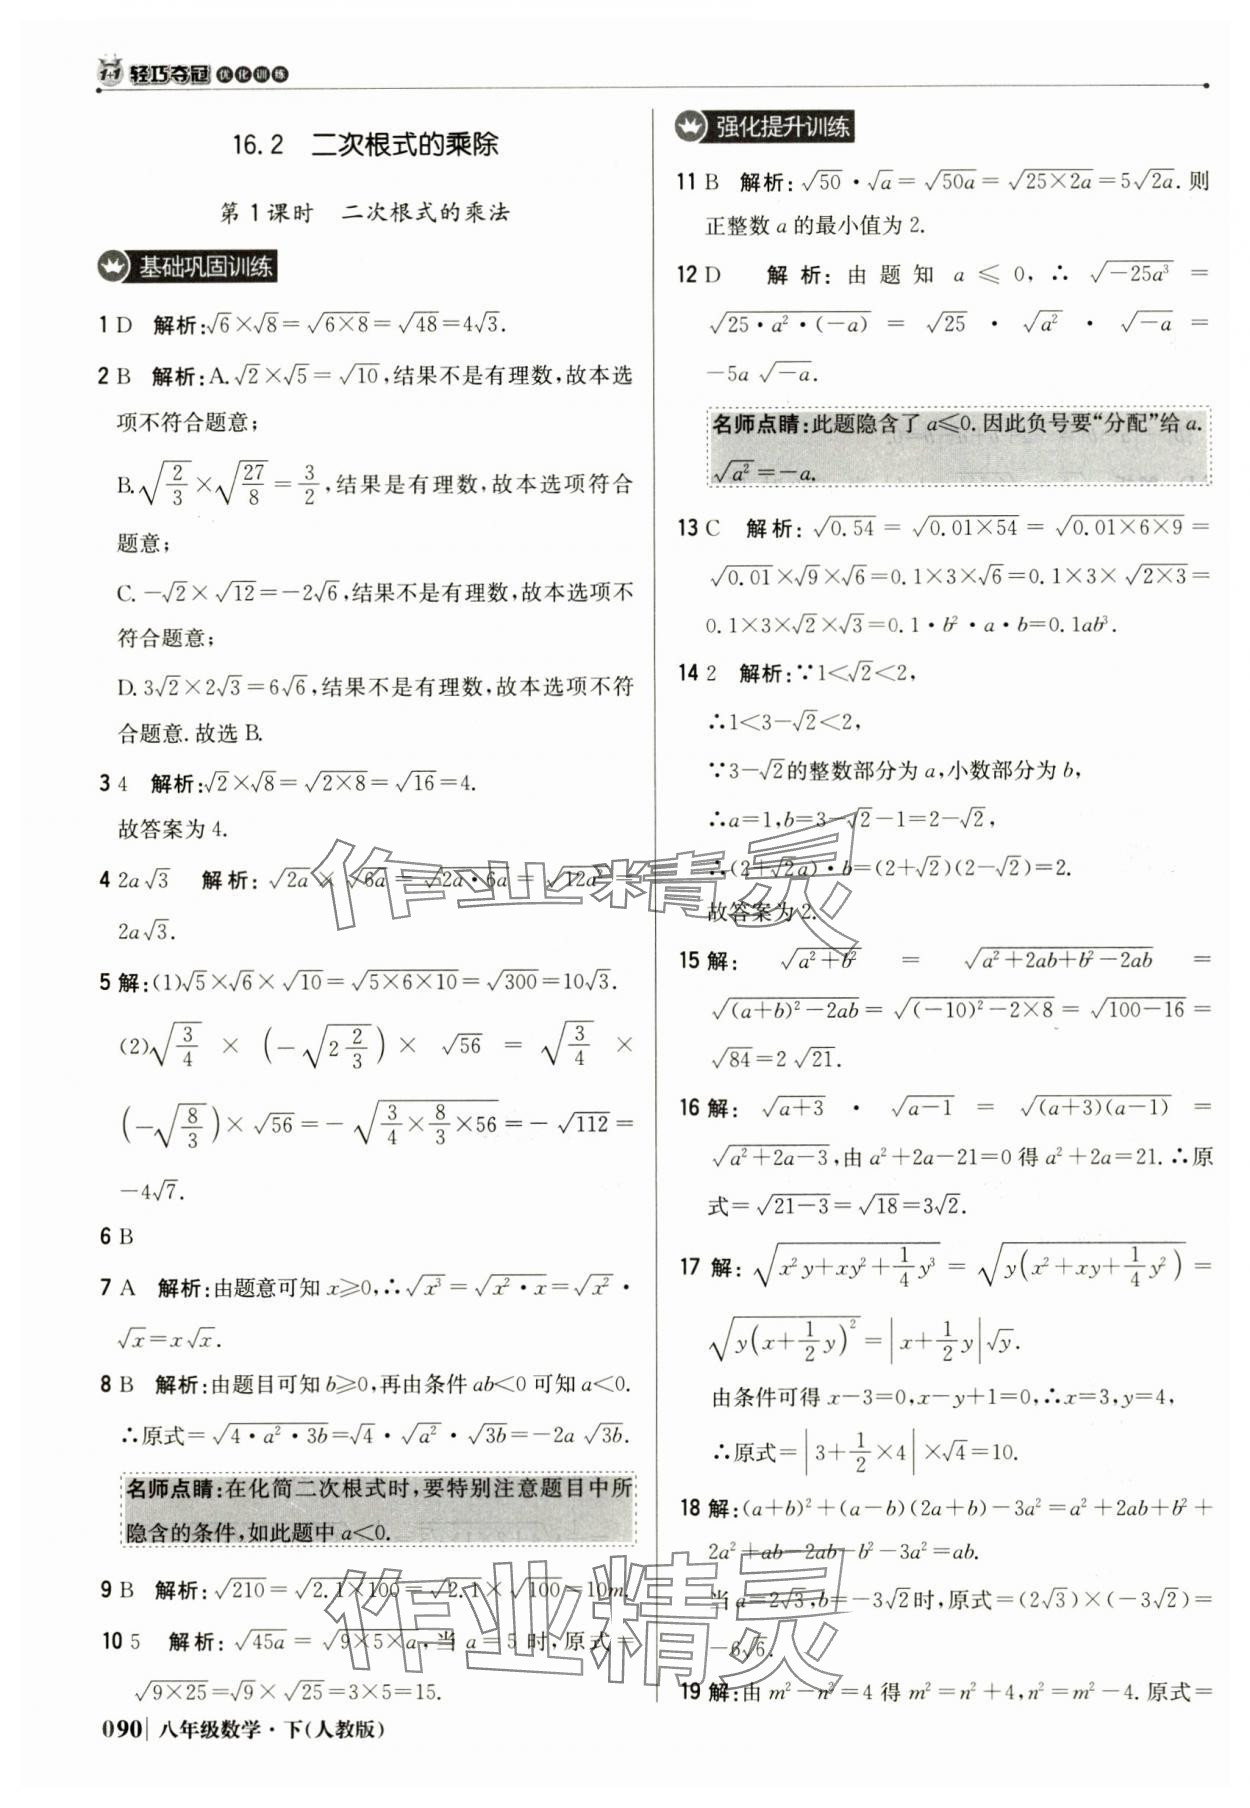 1+1 轻巧夺冠 优化训练
16.2 二次根式的乘除
第1课时 二次根式的乘法
基础巩固训练
1 D 解析:√6×√8=√(6×8)=√48=4√3.
2 B 解析:A.√2×√5=√10,结果不是有理数,故本选
项不符合题意;
B.√(2/3)×√(27/8)=3/2,结果是有理数,故本选项符合
题意;
C.-√2×√12=-2√6,结果不是有理数,故本选项不
符合题意;
D.3√2×2√3=6√6,结果不是有理数,故本选项不符
合题意.故选B.
3 4 解析:√2×√8=√(2×8)=√16=4.
故答案为4.
4 2a√3 解析:√(2a)×√(6a)=√(2a·6a)=√(12a²)=
2a√3.
5 解:(1)√5×√6×√10=√(5×6×10)=√300=10√3.
(2)√(3/4)×(-√(2 2/3))×√56=√(3/4)×
(-√(8/3))×√56=-√(3/4×8/3×56)=-√112=
-4√7.
6 B
7 A 解析:由题意可知x≥0,∴√(x³)=√(x²·x)=√(x²)·
√x=x√x.
8 B 解析:由题目可知b≥0,再由条件ab<0可知a<0.
∴原式=√(4·a²·3b)=√4·√(a²)·√(3b)=-2a√(3b).
名师点睛:在化简二次根式时,要特别注意题目中所
隐含的条件,如此题中a<0.
9 B 解析:√210=√(2.1×100)=√2.1×√100=10m.
10 5 解析:√(45a)=√(9×5×a),当a=5时,原式=
√(9×25)=√9×√25=3×5=15.
090 八年级数学·下(人教版)
强化提升训练
11 B 解析:√50·√a=√(50a)=√(25×2a)=5√(2a).则
正整数a的最小值为2.
12 D 解析:由题知a≤0,∴√(-25a³)=
√(25·a²·(-a))=√25·√(a²)·√(-a)=
-5a√(-a).
名师点睛:此题隐含了a≤0.因此负号要“分配”给a.
√(a²)=-a.
13 C 解析:√0.54=√(0.01×54)=√(0.01×6×9)=
√0.01×√9×√6=0.1×3×√6=0.1×3×√(2×3)=
0.1×3×√2×√3=0.1·b²·a·b=0.1ab³.
14 2 解析:∵1<√2<2,
∴1<3-√2<2,
∵3-√2的整数部分为a,小数部分为b,
∴a=1,b=3-√2-1=2-√2,
∴(2+√2a)·b=(2+√2)(2-√2)=2.
故答案为2.
15 解:√(a²+b²)=√(a²+2ab+b²-2ab)=
√((a+b)²-2ab)=√((-10)²-2×8)=√(100-16)=
√84=2√21.
16 解:√(a+3)·√(a-1)=√((a+3)(a-1))=
√(a²+2a-3),由a²+2a-21=0得a²+2a=21.∴原
式=√(21-3)=√18=3√2.
17 解:√(x²y+xy²+1/4y³)=√(y(x²+xy+1/4y²))=
√(y(x+1/2y)²)=|x+1/2y|√y.
由条件可得x-3=0,x-y+1=0,∴x=3,y=4,
∴原式=|3+1/2×4|×√4=10.
18 解:(a+b)²+(a-b)(2a+b)-3a²=a²+2ab+b²+
2a²+ab-2ab-b²-3a²=ab.
当a=2√3,b=-3√2时,原式=(2√3)×(-3√2)=
-6√6.
19 解:由m²-n²=4得m²=n²+4,n²=m²-4.原式=
作业精灵
作业精灵